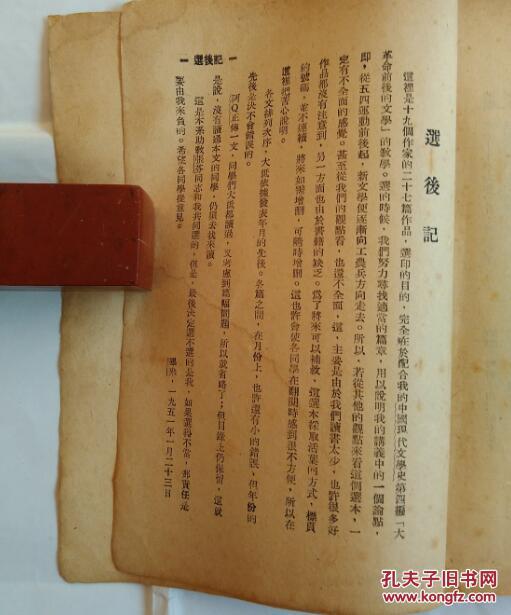 選後記
這裡是十九個作家的二十七篇作品，選印的目的，完全在於配合我的中國現代文學史第四編「大
革命前後的文學」的教學。選的時候，我們努力尋找適當的篇章，用以說明我的講義中的一個論點，
即，從五四運動前後起，新文學便逐漸向工農兵方向走去。所以，若從其他的觀點來看這個選本，一
定有不全面的感覺。甚至從我們的觀點看，也還不全面，這，主要是由於我們讀書太少，也許很多好
作品都沒有注意到，另一方面也由於書籍的缺乏。爲了將來可以補救，這選本採取活葉的方式，標頁
的號碼，並不連續，將來如需增刪，可隨時增刪。這也許會使各同學在翻閱時感到很不方便，所以在
這裡把苦心說明。
各文排列次序，大抵依據發表年月的先後。各篇之間，在月份上，也許還有小的錯誤，但年份的
先後是決不會錯誤的。
阿Q正傳一文，同學們大抵都讀過，又考慮到篇幅問題，所以就省略了；但目錄上仍保留，這就
是說，沒有讀過本文的同學，仍須去找來讀。
這是本系助教張芬同志和我共同選的，但是，最後決定選不選的是我，如果選得不當，那責任是
要由我來負的。希望各同學提意見。
，一九五一年一月二十三日
選後記
孔夫子旧书网
www.kongfz.com